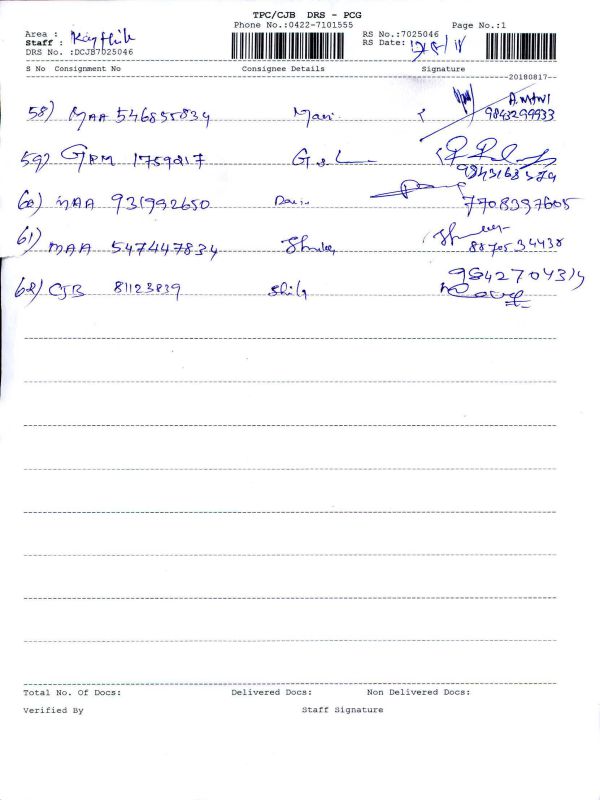 TPC/CJB DRS - PCG
Phone No.:0422-7101555 Page No.:1
Area : RS No.:7025046
Staff : Karthik RS Date: 17/8/18
DRS No. :DCJB7025046
S No Consignment No Consignee Details Signature
20180817
58) MAA 546855834 Mani A. MANI
9843299933
59) GRM 1759817
60) MAA 931992650 7708397605
61) MAA 547447834 8870534438
62) CJB 81123839 9842704314
Total No. Of Docs: Delivered Docs: Non Delivered Docs:
Verified By Staff Signature